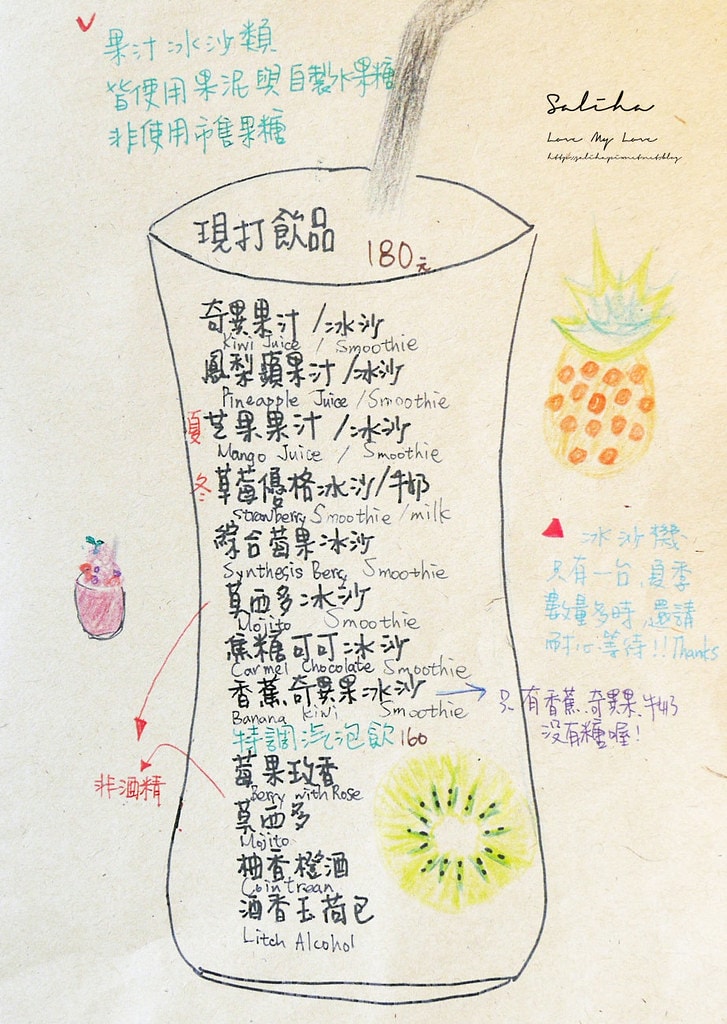 果汁冰沙類
皆使用果泥與自製水果糖
非使用市售果糖
Saliha
Love My Love
現打飲品 180元
奇異果汁/冰沙
Kiwi Juice / Smoothie
鳳梨蘋果汁/冰沙
Pineapple Juice / Smoothie
夏 芒果果汁/冰沙
Mango Juice / Smoothie
冬 草莓優格冰沙/牛奶
Strawberry Smoothie / milk
綜合莓果冰沙
Synthesis Berry Smoothie
莫西多冰沙
Mojito Smoothie
焦糖可可冰沙
Carmel Chocolate Smoothie
香蕉奇異果冰沙
Banana Kiwi Smoothie
特調汽泡飲 160
莓果玫香
Berry with Rose
莫西多
Mojito
柚香橙酒
Cointrean
酒香玉荷包
Litch Alcohol
非酒精
冰沙機
只有一台,夏季
數量多時,還請
耐心等待!!Thanks
只有香蕉、奇異果、牛奶
沒有糖喔!